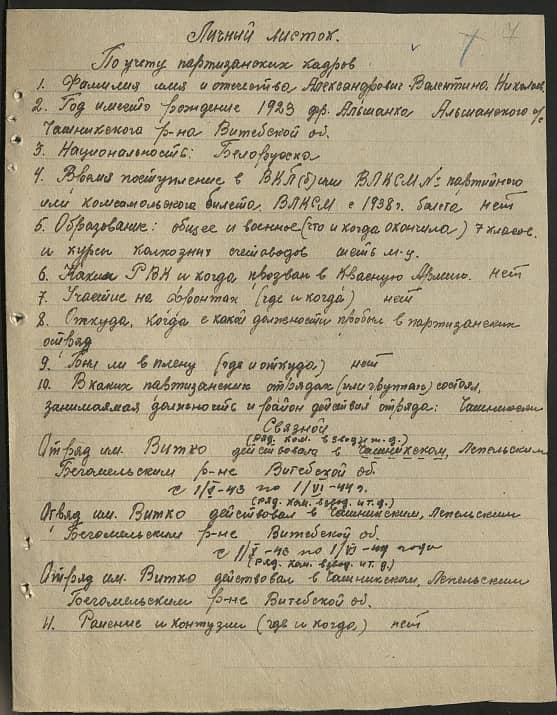 7
Личный листок.
По учету партизанских кадров
1. Фамилия имя и отечество Александрович Валентина. Николаев.
2. Год иместо рождение 1923 др. Альшанка Альшанского с/с
Чашникского р-на Витебской об.
3. Национальность: Белоруска
4. Время поступление в ВКП(б) или ВЛКСМ № партийного
или комсомольского билета. ВЛКСМ с 1938 г. билета нет
5. Образование: общее и военное (что и когда окончила) 7 класов.
и курсы колхозных счетоводов шесть м-ц.
6. Каким РВК и когда прозван в Кваеную Армию. нет
7. Участие на фронтах (где и когда) нет
8. Откуда, когда с какой должности пробыл в партизанских
отряд
9. Был ли в плену (где и откуда) нет
10. В каких партизанских отрядах (или группах) состоял,
занимаемая должность и район действия отряда:
Связной
(ряд. ком. взвод и т.д.)
Отряд им. Витко действовал в Чашникском, Лепельским
Бегомельским р-не Витебской об.
с 1/V-43 по 1/VI-44 г.
(ряд. ком. взвод. и т. д.)
Отвяд им. Витко действовал в Чашникским, Лепельским
Бегомельским р-не Витебской об.
с 1/V-43 по 1/VI-44 года
(ряд. ком. взвод. и т. д.)
Отряд им. Витко действовал в Чашникским, Лепельским
Бегомельским р-не Витебской об.
11. Ранение и контузии (где и когда) нет